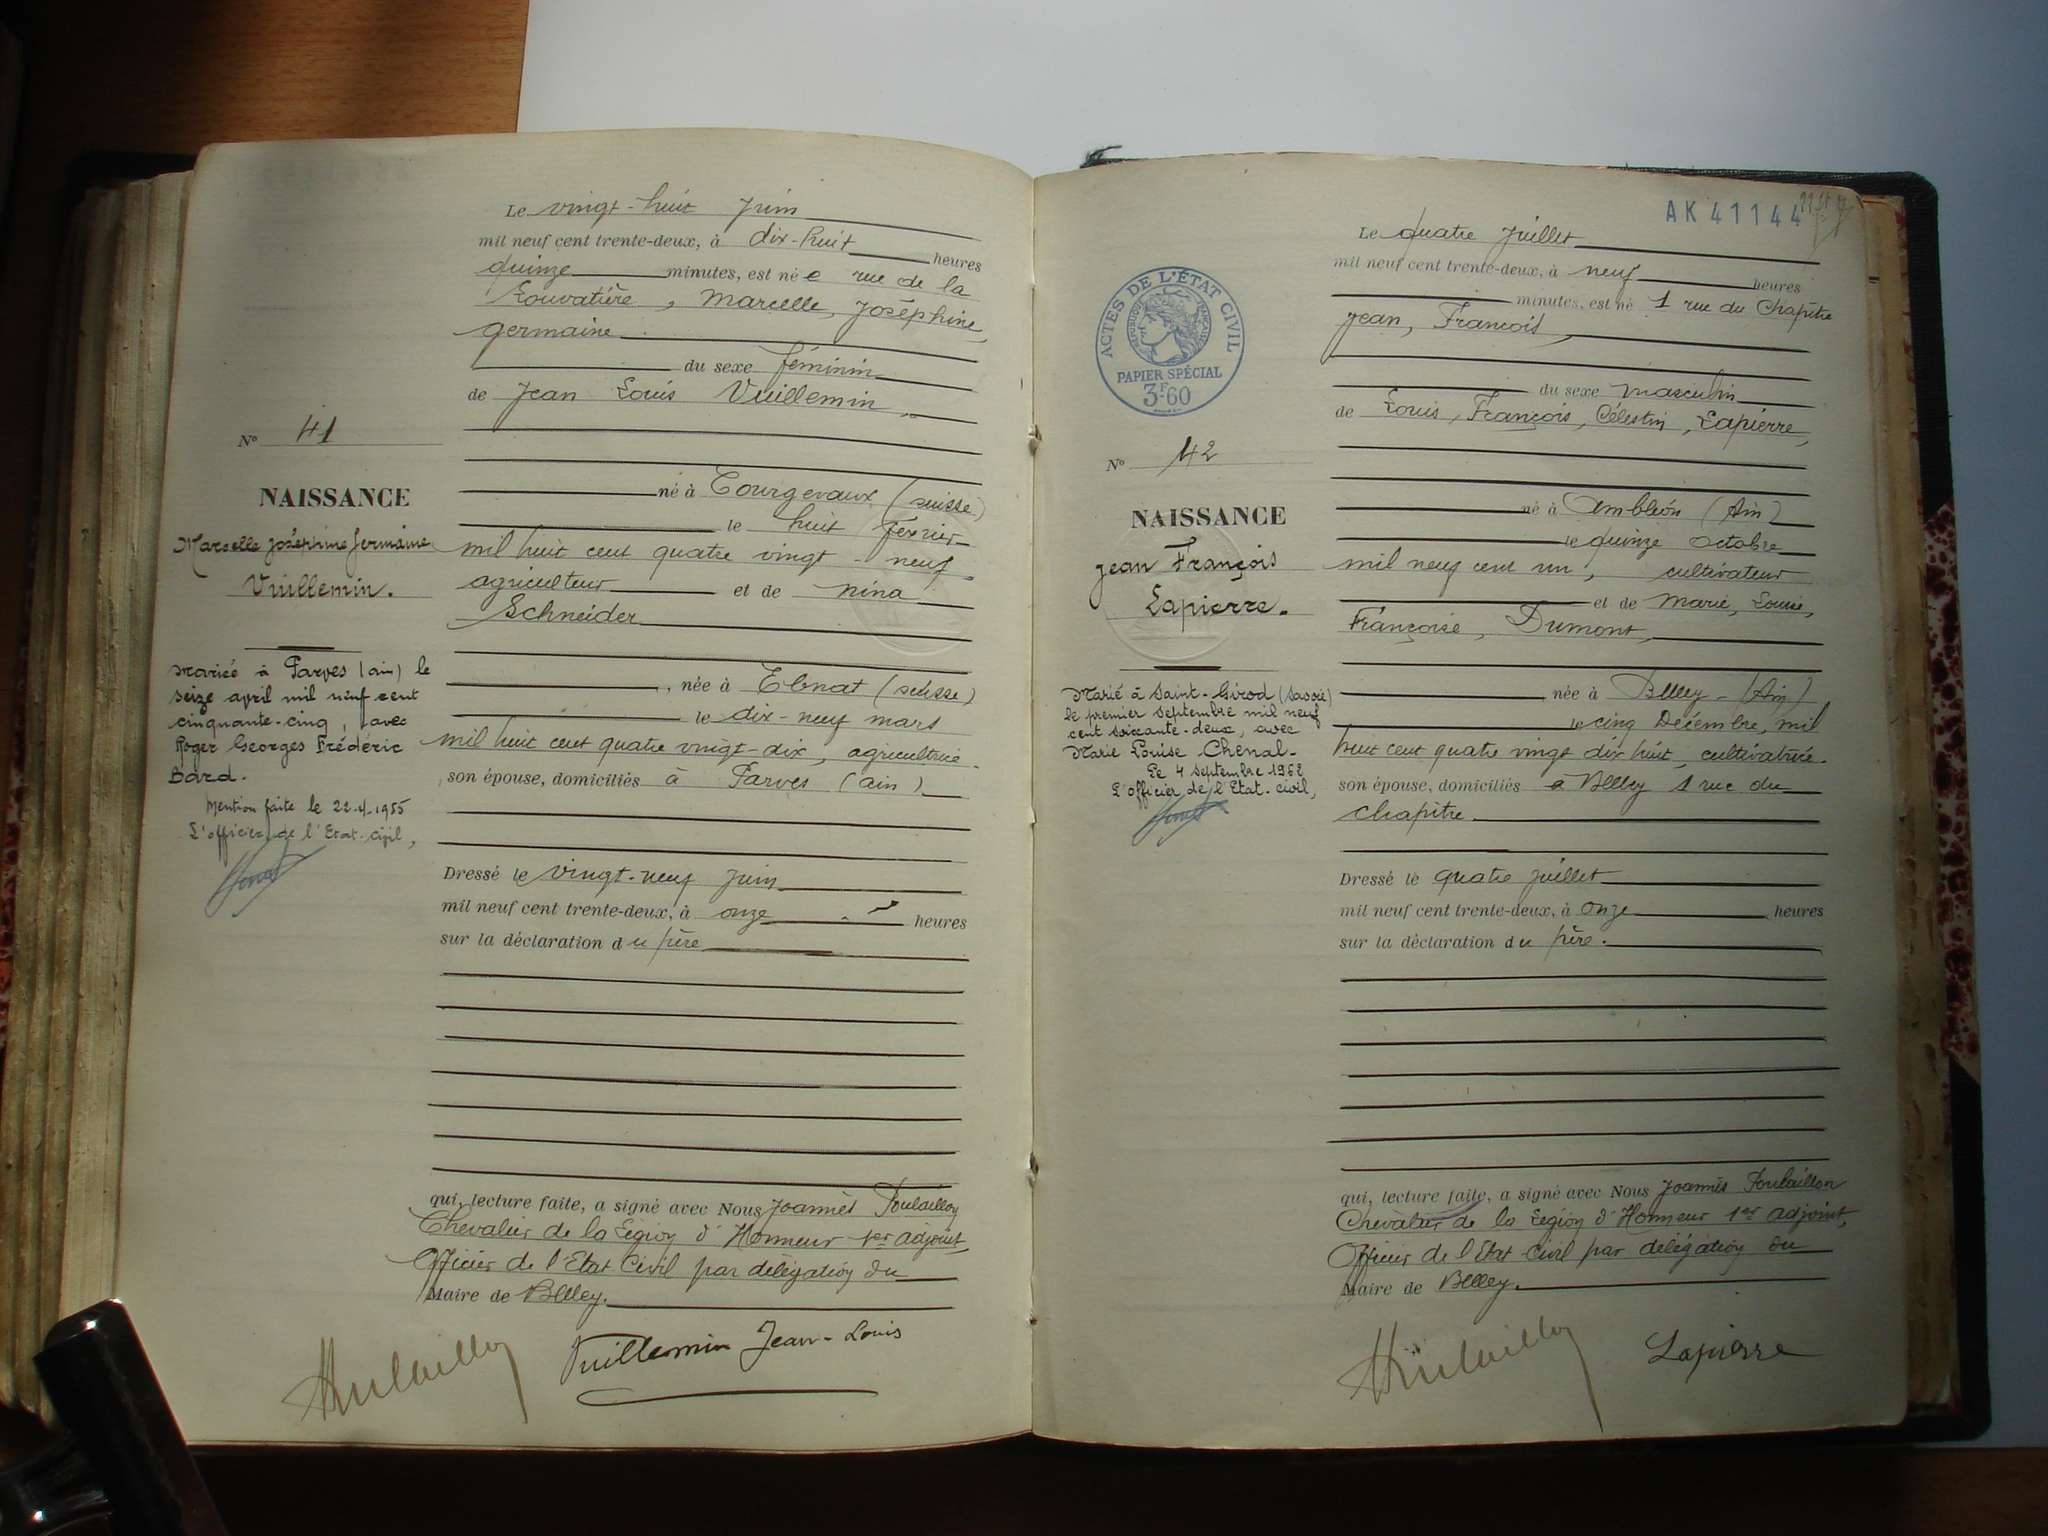 Le vingt-huit Juin
mil neuf cent trente-deux, à dix-huit heures
quinze minutes, est née rue de la
Louvatière, Marcelle, Joséphine,
germaine
du sexe féminin
de Jean Louis Vuillemin,
né à Courgevaux (suisse)
le huit février
mil huit cent quatre vingt-neuf
agriculteur et de Nina
Schneider
, née à Ebnat (suisse)
le dix-neuf mars
mil huit cent quatre vingt-dix, agricultrice
son épouse, domiciliés à Parves (ain)
Dressé le vingt-neuf juin
mil neuf cent trente-deux, à onze heures
sur la déclaration du père
qui, lecture faite, a signé avec Nous Joannès Poulaillon
Chevalier de la Légion d'Honneur 1er adjoint,
Officier de l'Etat Civil par délégation du
Maire de Belley.
Vuillemin Jean-Louis
N° 41
NAISSANCE
Marcelle Joséphine Germaine
Vuillemin.
Mariée à Parves (ain) le
seize avril mil neuf cent
cinquante-cinq, avec
Roger Georges Frédéric
Bard.
Mention faite le 22-4-1955
L'officier de l'Etat-civil,
AK 41144
Le quatre Juillet
mil neuf cent trente-deux, à neuf heures
minutes, est né 1 rue du Chapitre
Jean, François,
du sexe masculin
de Louis, François, Célestin, Lapierre,
né à Ambléon (Ain)
le quinze octobre
mil neuf cent un, cultivateur
et de Marie, Louise,
Françoise, Dumont,
née à Belley (Ain)
le cinq Décembre, mil
huit cent quatre vingt dix huit, cultivatrice
son épouse, domiciliés à Belley 1 rue du
chapitre
Dressé le quatre juillet
mil neuf cent trente-deux, à onze heures
sur la déclaration du père.
qui, lecture faite, a signé avec Nous Joannès Poulaillon
Chevalier de la Légion d'Honneur 1er adjoint,
Officier de l'Etat-Civil par délégation du
Maire de Belley.
Lapierre
ACTES DE L'ÉTAT CIVIL
RÉPUBLIQUE FRANÇAISE
PAPIER SPÉCIAL
3F60
N° 42
NAISSANCE
Jean François
Lapierre.
Marié à Saint-Girod (Savoie)
le premier septembre mil neuf
cent soixante-deux, avec
Marie Louise Chenal-
Le 4 septembre 1962
L'officier de l'Etat-civil,